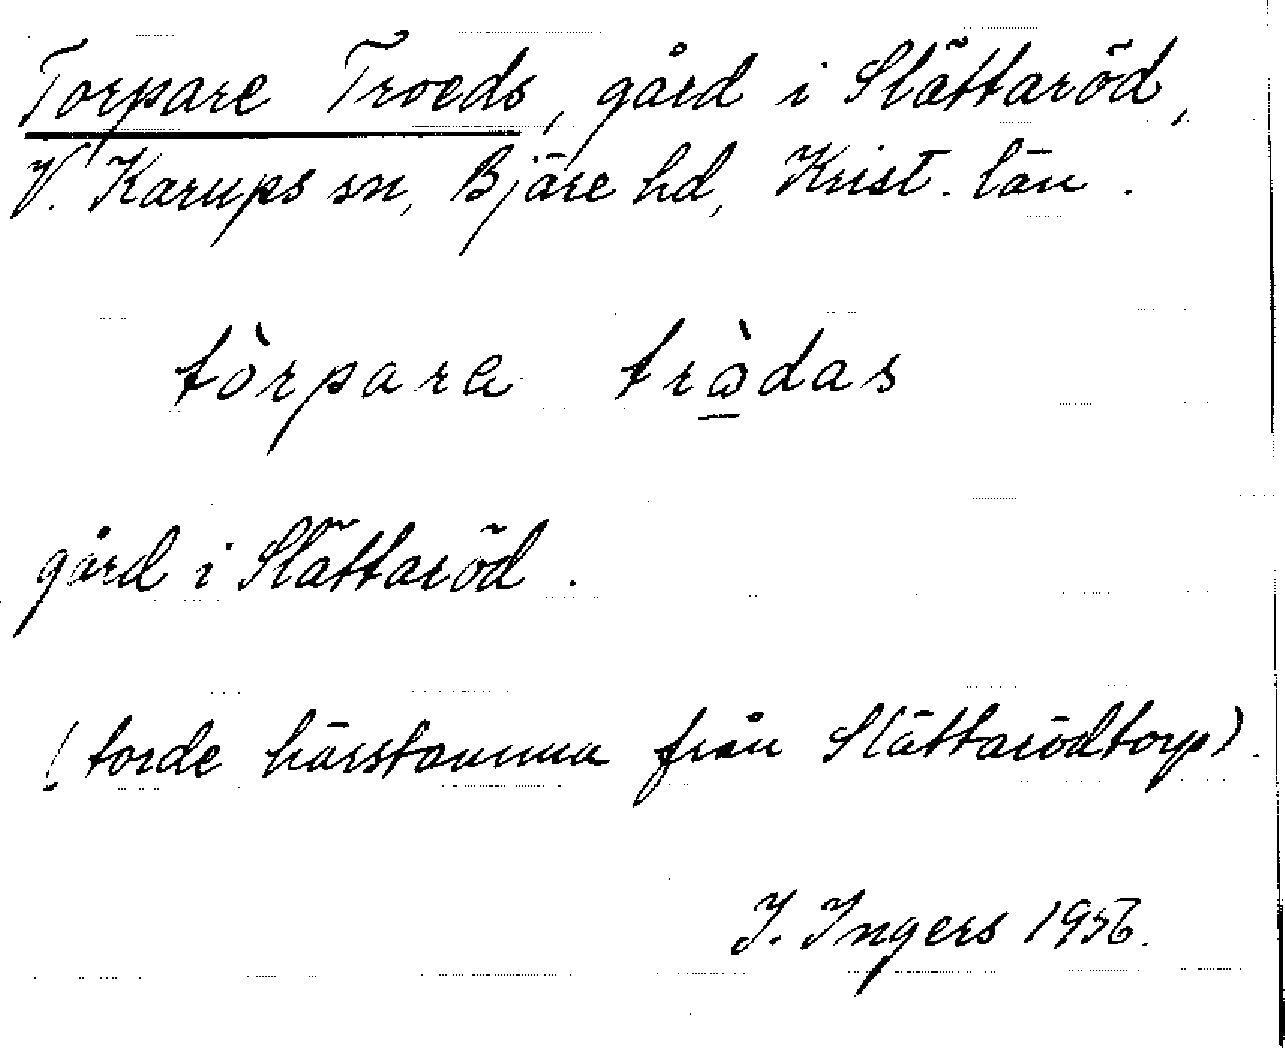 Torpare Troeds, gård i Slättaröd,
V. Karups sn, Bjäre hd, Krist. län.
tòrpara tràdas
gård i Slättaröd.
(torde härstamma från Slättarödtorp).
I. Ingers 1956.